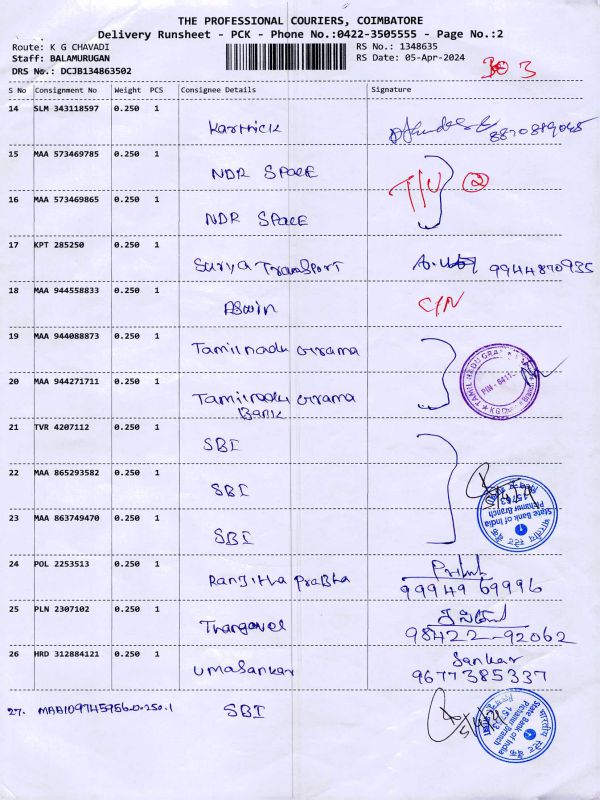 THE PROFESSIONAL COURIERS, COIMBATORE
Delivery Runsheet - PCK - Phone No.:0422-3505555 - Page No.:2
Route: K G CHAVADI RS No.: 1348635
Staff: BALAMURUGAN RS Date: 05-Apr-2024
DRS No.: DCJB134863502 3
S No Consignment No Weight PCS Consignee Details Signature
14 SLM 343118597 0.250 1
Karthick 8870889045
15 MAA 573469785 0.250 1
NDR SPACE T/U 2
16 MAA 573469865 0.250 1
NDR SPACE
17 KPT 285250 0.250 1
Surya Transport 9944870935
18 MAA 944558833 0.250 1
Aswin C/N
19 MAA 944088873 0.250 1
Tamilnadu Grama
20 MAA 944271711 0.250 1
Tamilnadu Grama
Bank
21 TVR 4207112 0.250 1
SBI
22 MAA 865293582 0.250 1
SBI
23 MAA 863749470 0.250 1
SBI
State Bank of India
Pichanur Branch
24 POL 2253513 0.250 1
Ranjitha Prabha 99949 69996
25 PLN 2307102 0.250 1
Thangavel 98422-92062
26 HRD 312884121 0.250 1
Umasankar Sankar
9677385337
27. 0.250.1 SBI
State Bank of India
Pichanur Branch